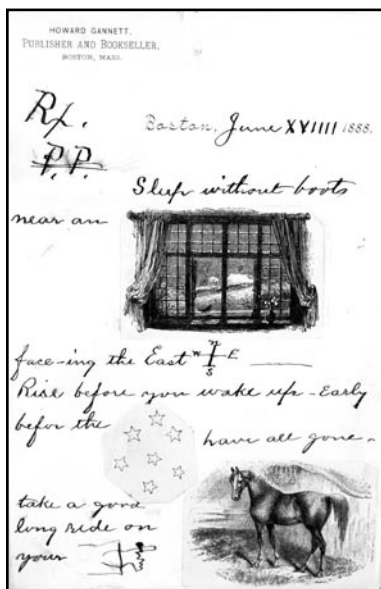 HOWARD GANNETT,
PUBLISHER AND BOOKSELLER,
BOSTON, MASS.
Rx.
Boston, June XVIIII 1888.
P.P.
Sleep without boots
near an
face-ing the East W N E
S
Rise before you wake up - Early
befor the
have all gone -
take a good
long ride on
your